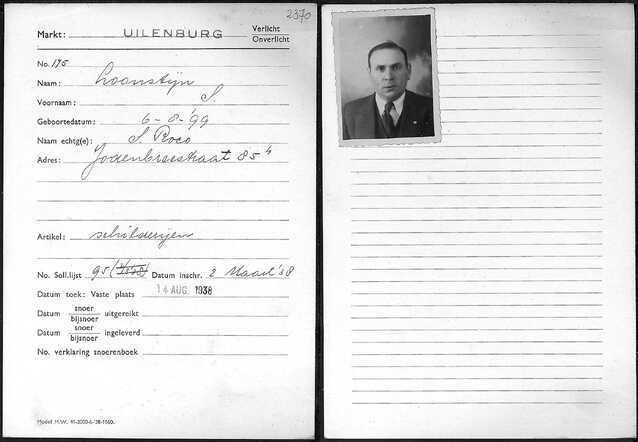 2370
Markt: UILENBURG Verlicht
Onverlicht
No. 175
Naam: Loonstijn
Voornaam: S.
Geboortedatum: 6-8-'99
Naam echtg(e): S Roco
Adres: Jodenbreestraat 85 h
Artikel: schilderijen
No. Soll.lijst 95 ( Datum inschr. 2 Maart '38
Datum toek: Vaste plaats 14 AUG. 1938
Datum snoer / bijsnoer uitgereikt
Datum snoer / bijsnoer ingeleverd
No. verklaring snoerenboek